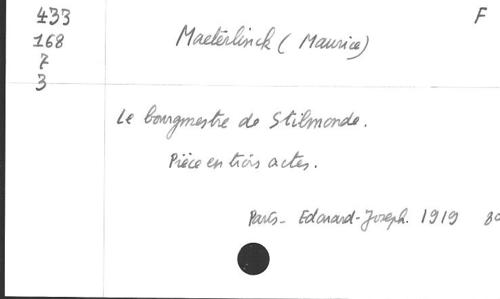 433
168
7
3
F
Maeterlinck (Maurice)
Le bourgmestre de Stilmonde.
Pièce en trois actes.
Paris - Edouard-Joseph. 1919 80